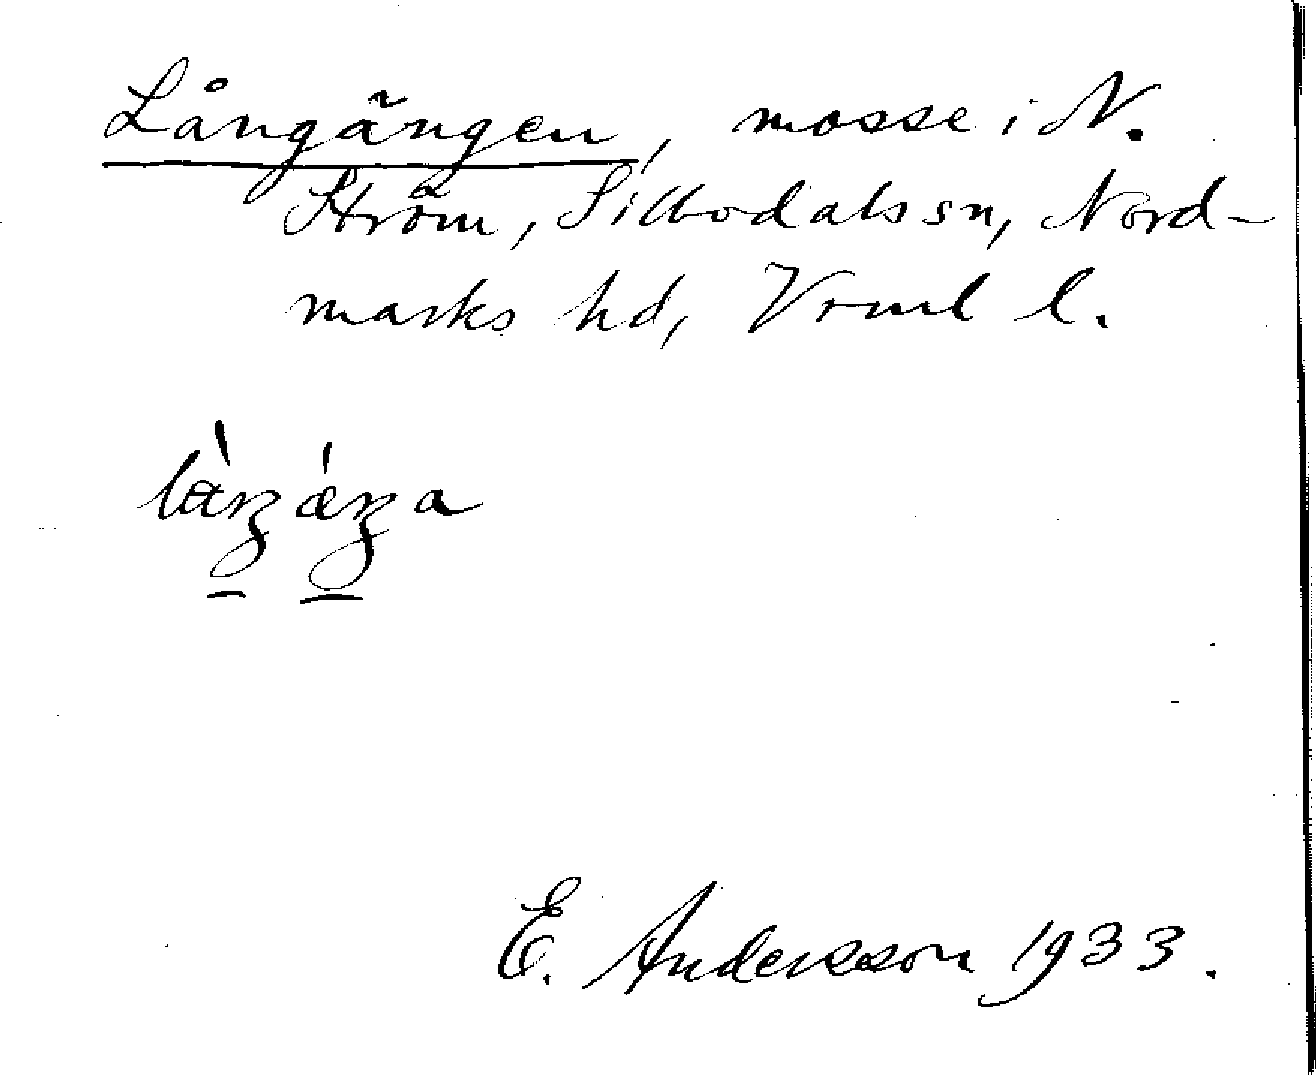 Långängen, mosse i N.
Ström, Silbodals sn, Nord-
marks hd, Vrml l.
E. Andersson 1933.